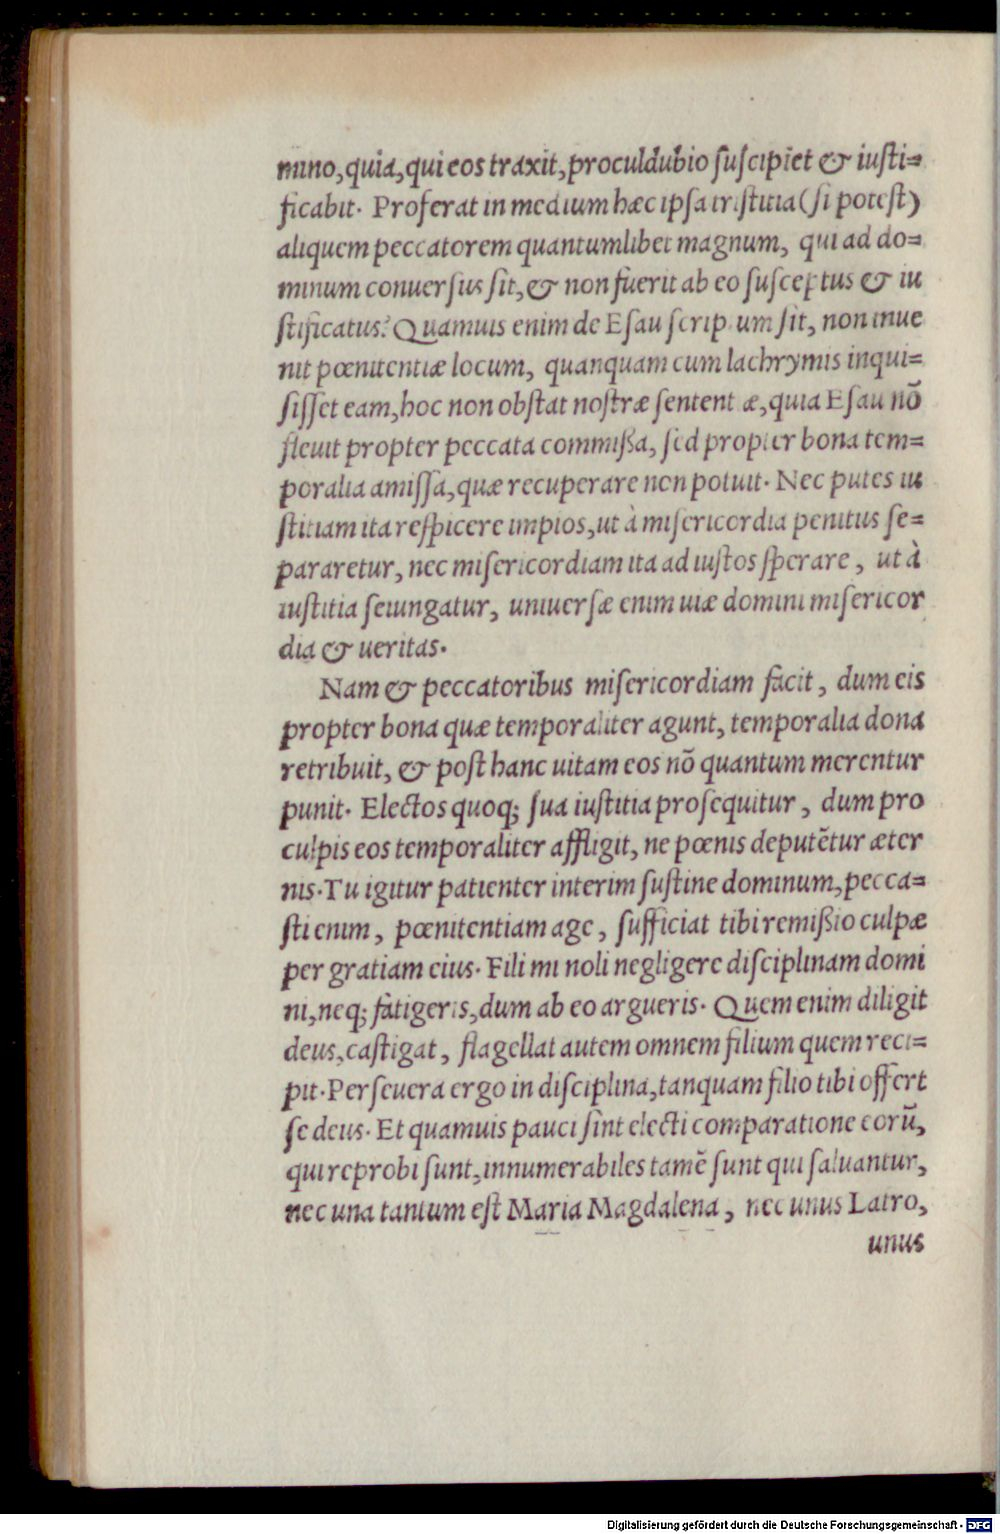 mino, quia, qui eos traxit, proculdubio suscipiet & iusti=
ficabit. Proferat in medium hæc ipsa tristitia (si potest)
aliquem peccatorem quantumlibet magnum, qui ad do=
minum conuersus sit, & non fuerit ab eo susceptus & iu
stificatus? Quamuis enim de Esau scriptum sit, non inue
nit pœnitentiæ locum, quanquam cum lachrymis inqui=
sisset eam, hoc non obstat nostræ sententiæ, quia Esau nō
fleuit propter peccata commißa, sed propter bona tem=
poralia amissa, quæ recuperare non potuit. Nec putes iu
stitiam ita respicere impios, ut à misericordia penitus se=
pararetur, nec misericordiam ita ad iustos sperare, ut à
iustitia seiungatur, uniuersæ enim uiæ domini misericor
dia & ueritas.
Nam & peccatoribus misericordiam facit, dum eis
propter bona quæ temporaliter agunt, temporalia dona
retribuit, & post hanc uitam eos nō quantum merentur
punit. Electos quoq; sua iustitia prosequitur, dum pro
culpis eos temporaliter affligit, ne pœnis deputētur æter
nis. Tu igitur patienter interim sustine dominum, pecca=
sti enim, pœnitentiam age, sufficiat tibi remißio culpæ
per gratiam eius. Fili mi noli negligere disciplinam domi
ni, neq; fatigeris, dum ab eo argueris. Quem enim diligit
deus, castigat, flagellat autem omnem filium quem reci=
pit. Perseuera ergo in disciplina, tanquam filio tibi offert
se deus. Et quamuis pauci sint electi comparatione eorū,
qui reprobi sunt, innumerabiles tamē sunt qui saluantur,
nec una tantum est Maria Magdalena, nec unus Latro,
unus
Digitalisierung gefördert durch die Deutsche Forschungsgemeinschaft - DFG